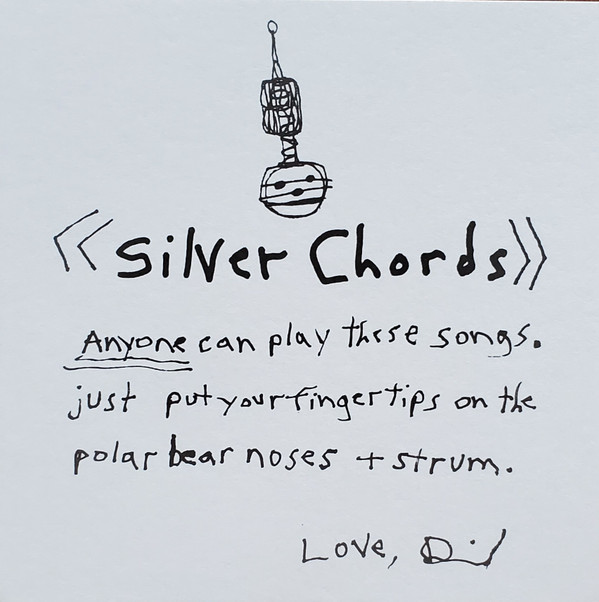 << Silver Chords >>
Anyone can play these songs.
just put your fingertips on the
polar bear noses + strum.
Love,